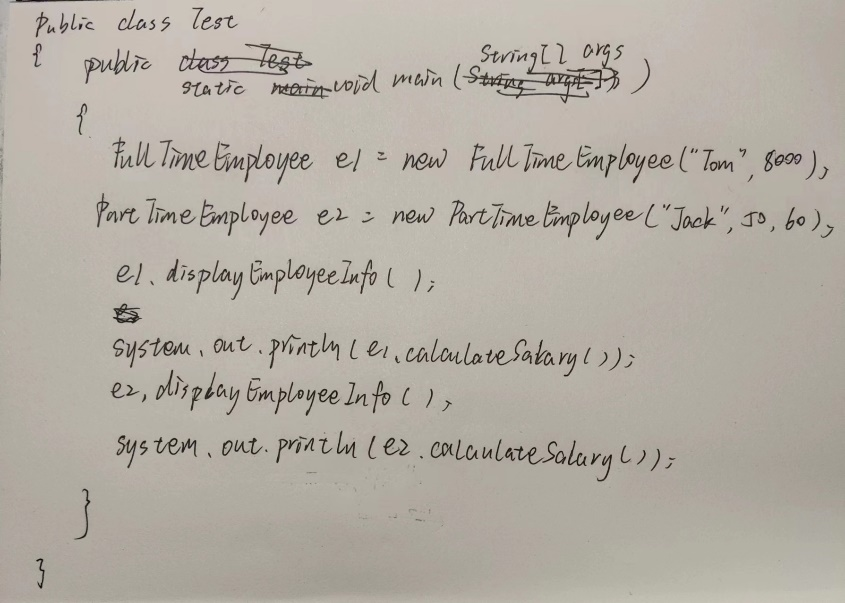 public class Test
{
public static void main (String[] args)
{
FullTimeEmployee e1 = new FullTimeEmployee("Tom", 8000);
PartTimeEmployee e2 = new PartTimeEmployee("Jack", 50, 60);
e1.displayEmployeeInfo();
system.out.println(e1.calculateSalary());
e2.displayEmployeeInfo();
system.out.println(e2.calculateSalary());
}
}